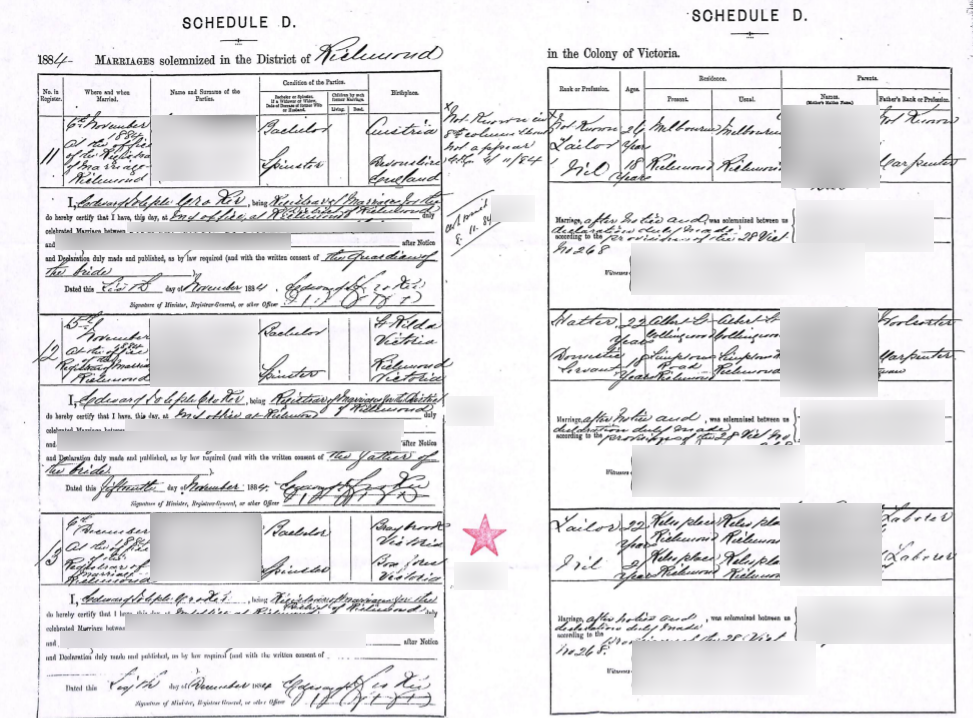 SCHEDULE D.
1884 MARRIAGES solemnized in the District of Richmond
No. in Register.
Where and when Married.
Name and Surname of the Parties.
Condition of the Parties.
Bachelor or Spinster. If a Widower or Widow, Date of Decease of former Wife or Husband.
Children by each former Marriage.
Living. Dead.
Birthplace.
11
6th November 1884
At the office of the Registrar of Marriages Richmond
Bachelor
Austria
Spinster
Devonshire England
Not Known in 8th column should not appear
I, being Registrar of Marriages for the District of Richmond
do hereby certify that I have, this day, at my office, at Richmond duly
celebrated Marriage between
and after Notice
and Declaration duly made and published, as by law required (and with the written consent of the Guardian of
the bride ).
Dated this Sixth day of November 1884
Signature of Minister, Registrar-General, or other Officer
12
November 1884
At the office of the Registrar Marriages Richmond
Bachelor
St Kilda Victoria
Spinster
Richmond Victoria
I, being Registrar of Marriages for the District of Richmond
do hereby certify that I have, this day, at my office at Richmond duly
celebrated Marriage between
and after Notice
and Declaration duly made and published, as by law required (and with the written consent of the father of
the bride ).
Dated this day of November 1884
Signature of Minister, Registrar-General, or other Officer
13
6th December 1884
At the office of the Registrar of Marriages Richmond
Bachelor
Braybrook Victoria
Spinster
Victoria
I, being Registrar of marriages for the District of Richmond
do hereby certify that I have, this day, at my office at Richmond duly
celebrated Marriage between
and after Notice
and Declaration duly made and published, as by law required (and with the written consent of
Dated this Sixth day of December 1884
Signature of Minister, Registrar-General, or other Officer
SCHEDULE D.
in the Colony of Victoria.
Rank or Profession.
Ages.
Residence.
Present.
Usual.
Parents.
Names.
(Mother's Maiden Name.)
Father's Rank or Profession.
Not Known
Tailor
26 Years
Melbourne
Melbourne
Not Known
Nil
18 Years
Richmond
Richmond
Carpenter
Marriage, after Notice and , was solemnized between us
declaration duly made
according to the provisions of the 28 Vict
No 268
Witnesses
Hatter
22 Years
Albert St Collingwood
Albert St Collingwood
Domestic Servant
18 Years
Simpsons Road Richmond
Simpsons Richmond
Carpenter
Marriage, after Notice and , was solemnized between us
declaration duly made
according to the provisions of the 28 Vict No
Witnesses
Tailor
22 Years
Richmond
Richmond
Laborer
Nil
21 Years
Richmond
Richmond
Laborer
Marriage, after notice and , was solemnized between us
declaration duly made
according to the provisions of the 28 Vict
No 268.
Witnesses